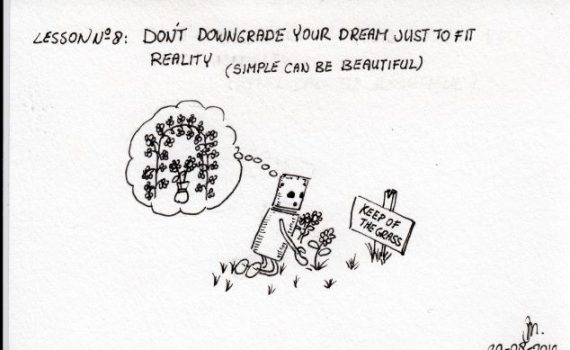 LESSON Nº8: DON'T DOWNGRADE YOUR DREAM JUST TO FIT
REALITY (SIMPLE CAN BE BEAUTIFUL)
KEEP OF
THE GRASS